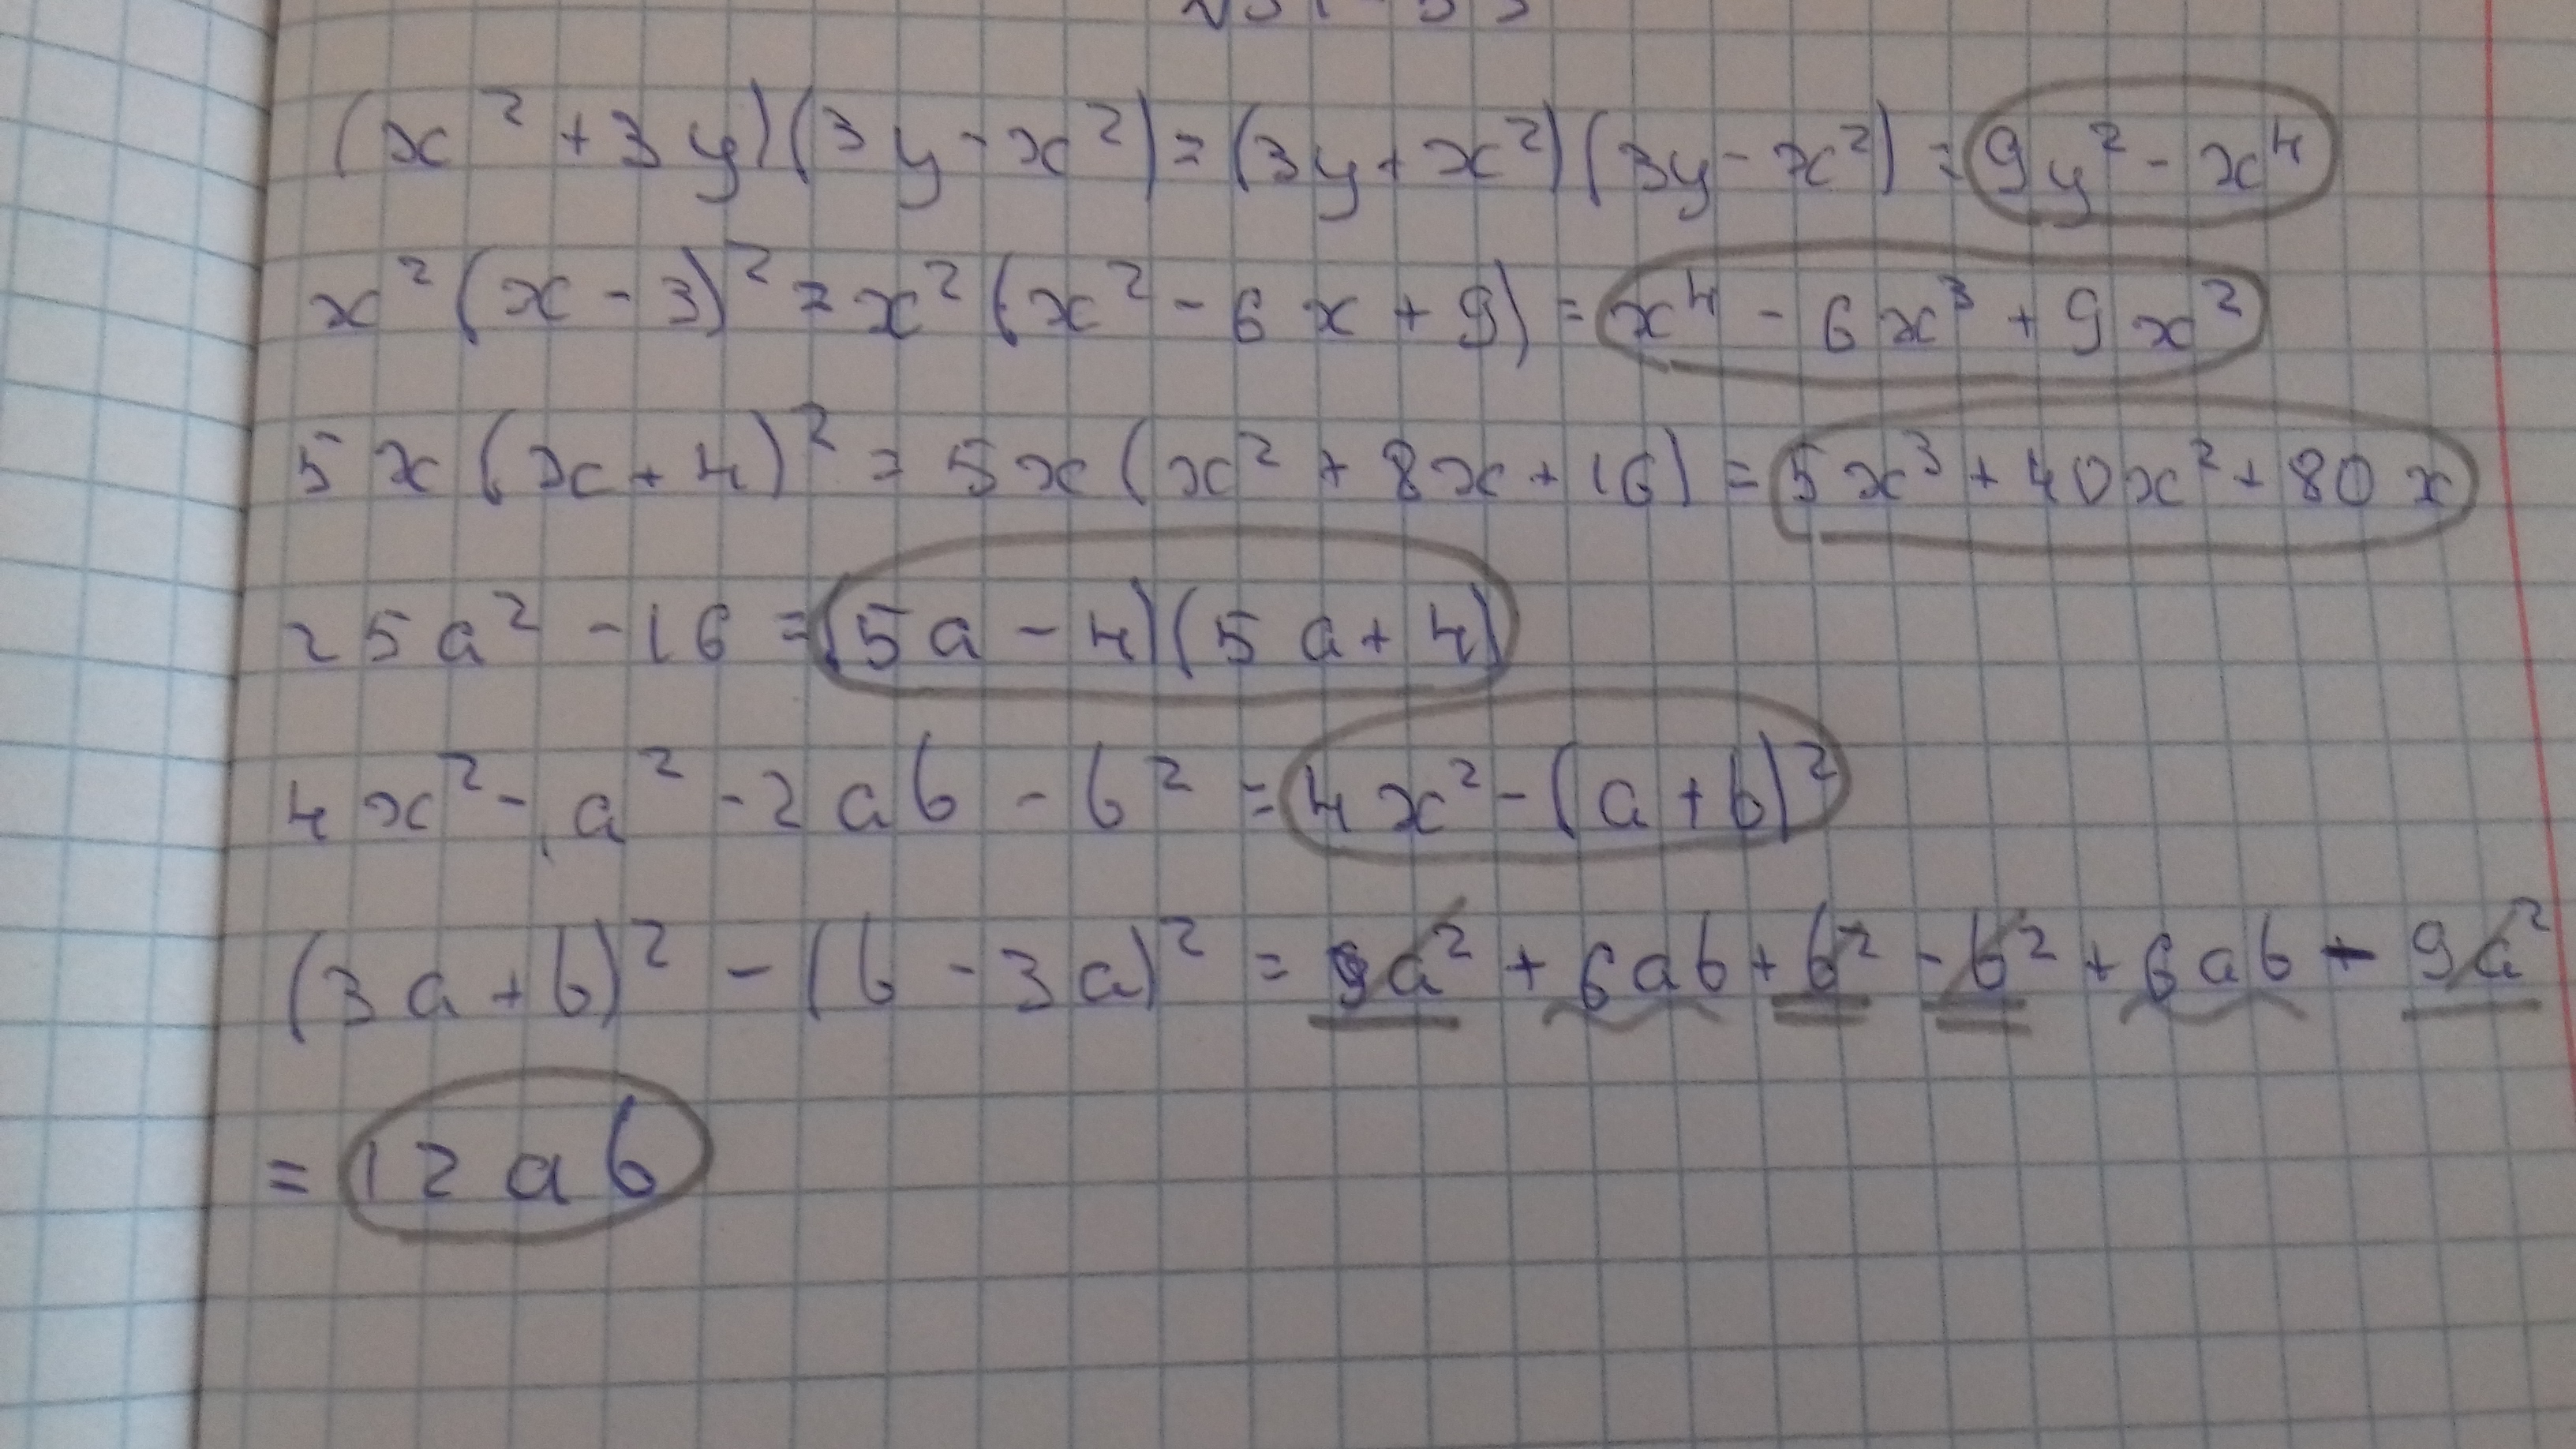 (x² + 3y)(3y - x²) = (3y + x²)(3y - x²) = 9y² - x⁴
x²(x - 3)² = x²(x² - 6x + 9) = x⁴ - 6x³ + 9x²
5x(x + 4)² = 5x(x² + 8x + 16) = 5x³ + 40x² + 80x
25a² - 16 = (5a - 4)(5a + 4)
4x² - a² - 2ab - b² = 4x² - (a + b)²
(3a + b)² - (b - 3a)² = 9a² + 6ab + b² - b² + 6ab - 9a²
= 12ab